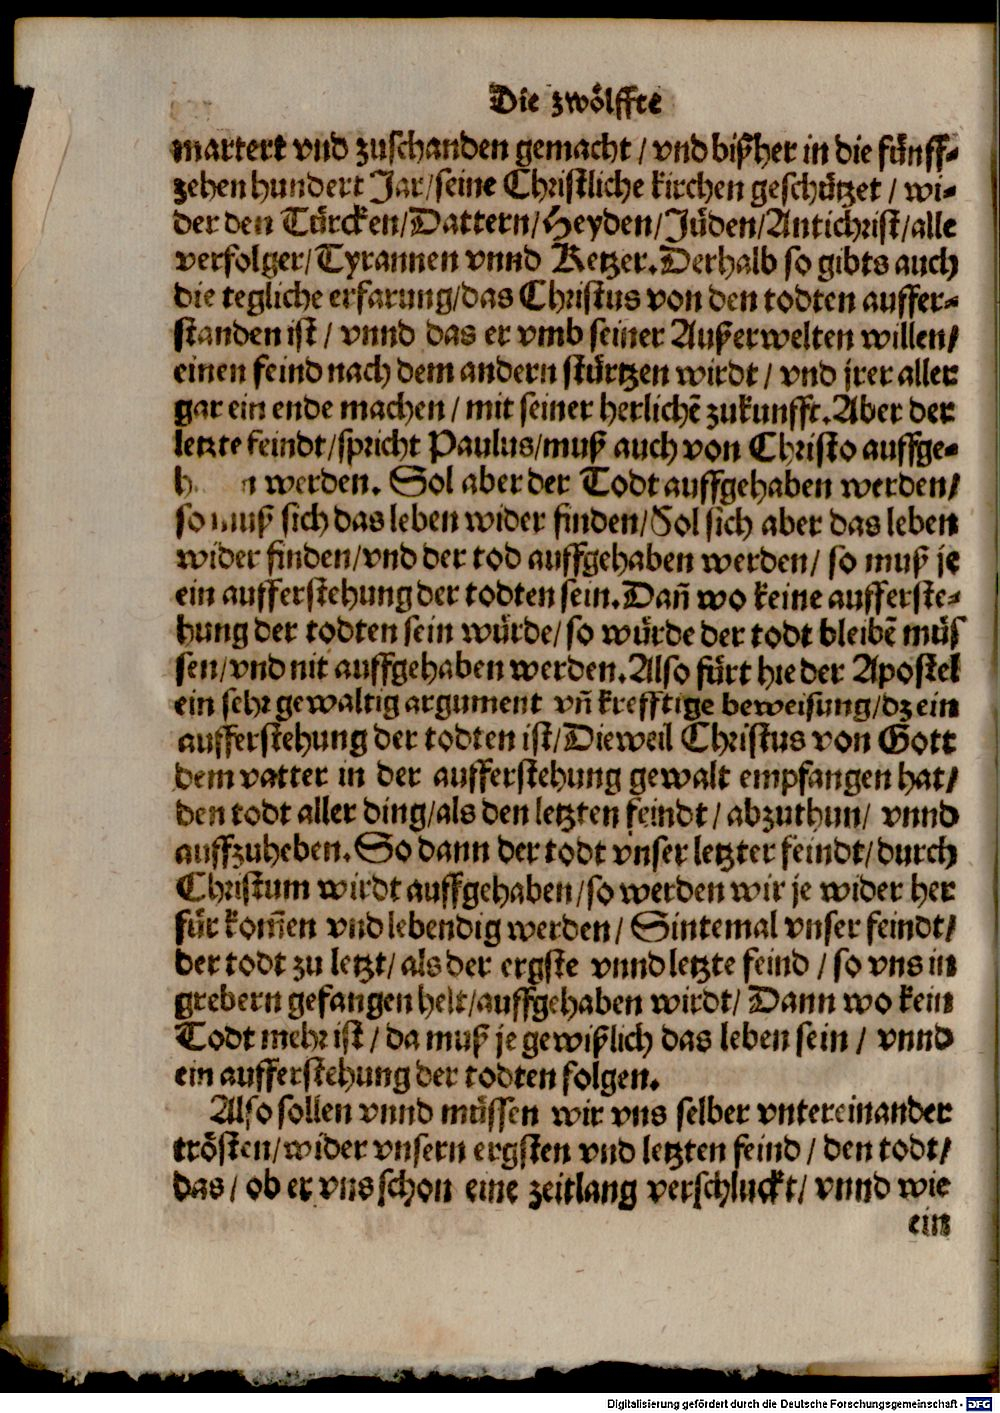 Die zwölffte
martert vnd zuschanden gemacht / vnd bißher in die fünff-
zehen hundert Jar/seine Christliche kirchen geschützet / wi-
der den Türcken/Dattern/Heyden/Jüden/Antichrist/alle
verfolger/Tyrannen vnnd Ketzer.Derhalb so gibts auch
die tegliche erfarung/das Christus von den todten auffer-
standen ist / vnnd das er vmb seiner Außerwelten willen/
einen feind nach dem andern stürtzen wirdt / vnd jrer aller
gar ein ende machen / mit seiner herlichẽ zukunfft.Aber der
letzte feindt/spricht Paulus/muß auch von Christo auffge-
werden. Sol aber der Todt auffgehaben werden/
so muß sich das leben wider finden/Sol sich aber das leben
wider finden/vnd der tod auffgehaben werden/ so muß je
ein aufferstehung der todten sein.Dañ wo keine aufferste-
hung der todten sein würde/so würde der todt bleibẽ müs
sen/vnd nit auffgehaben werden.Also fürt hie der Apostel
ein sehr gewaltig argument vñ krefftige beweisung/dz ein
aufferstehung der todten ist/Dieweil Christus von Gott
dem vatter in der aufferstehung gewalt empfangen hat/
den todt aller ding/als den letzten feindt / abzuthun/ vnnd
auffzuheben.So dann der todt vnser letzter feindt/durch
Christum wirdt auffgehaben/so werden wir je wider her
für kom̃en vnd lebendig werden/ Sintemal vnser feindt/
der todt zu letzt/als der ergste vnnd letzte feind / so vns in
grebern gefangen helt/auffgehaben wirdt/ Dann wo kein
Todt mehr ist / da muß je gewißlich das leben sein / vnnd
ein aufferstehung der todten folgen.
Also sollen vnnd müssen wir vns selber vntereinander
trösten/wider vnsern ergsten vnd letzten feind / den todt/
das / ob er vns schon eine zeitlang verschluckt/ vnnd wie
ein
Digitalisierung gefördert durch die Deutsche Forschungsgemeinschaft - DFG